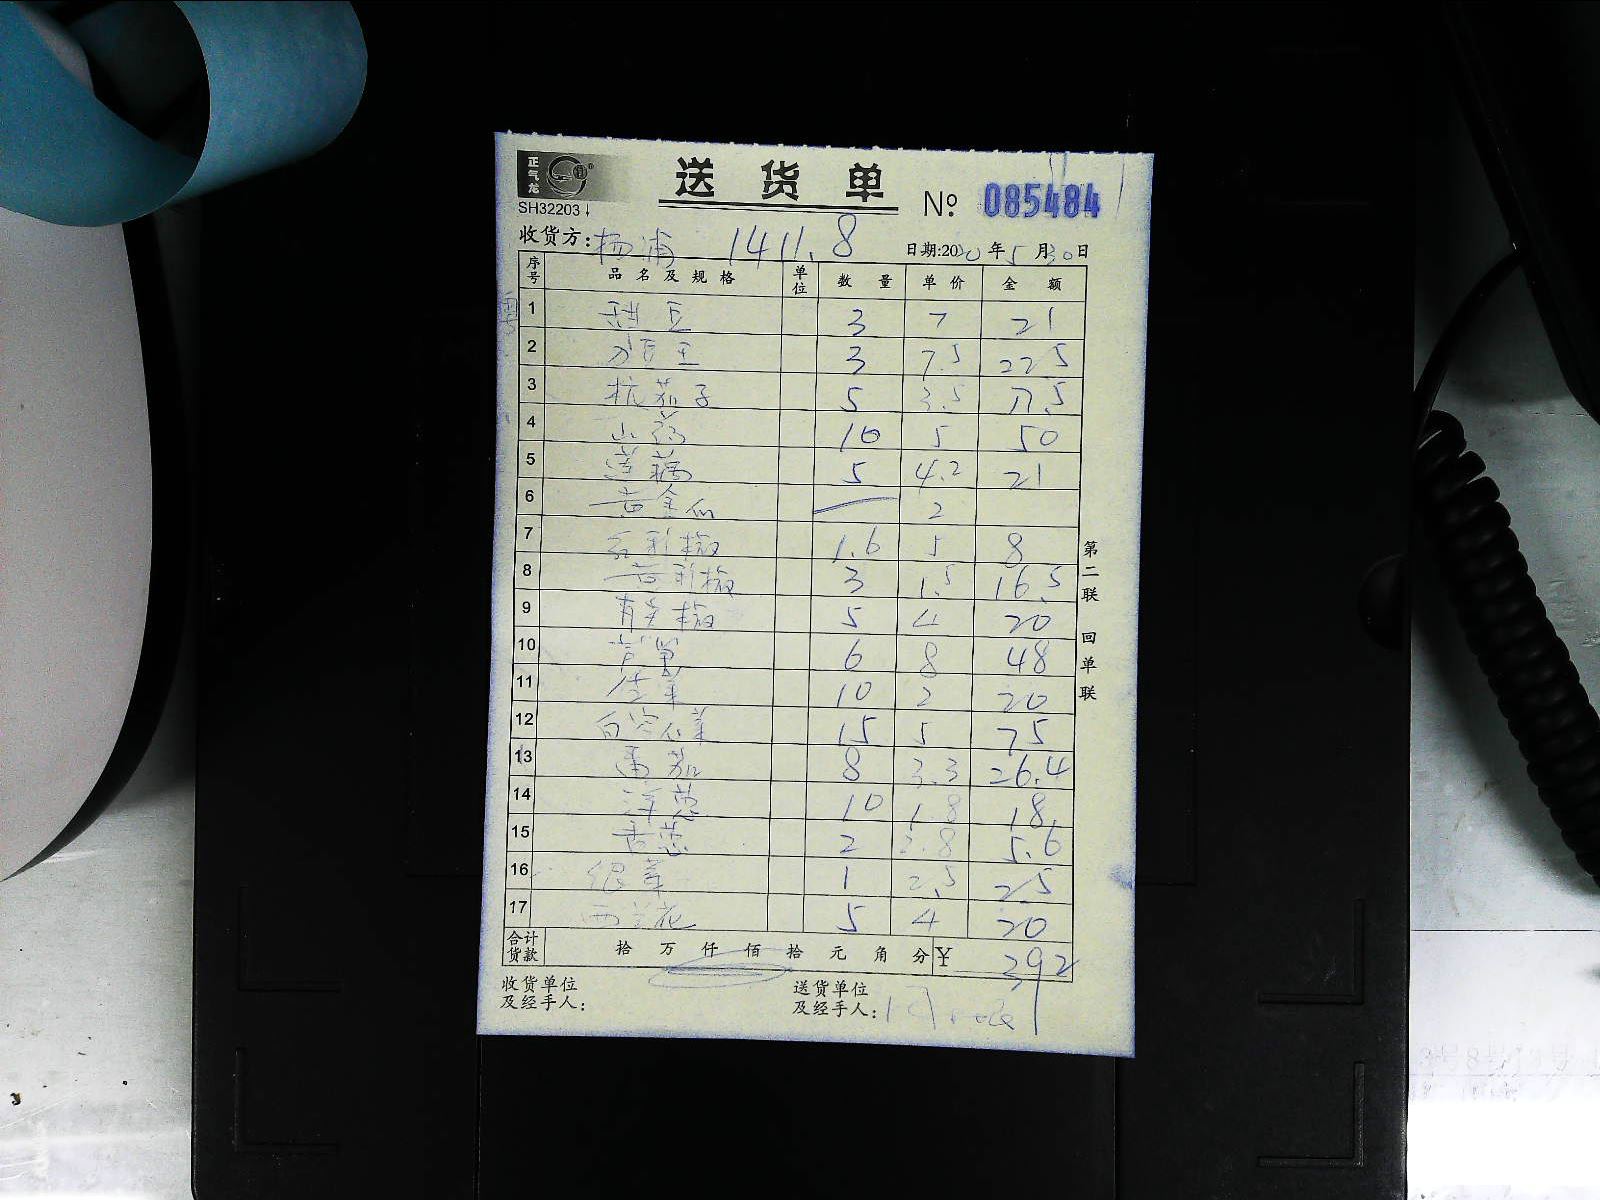 正气龙
送货单
№ 085484
SH32203
收货方: 杨浦 1411.8 日期:2020年5月30日
序号 品名及规格 单位 数量 单价 金额
1 豆 3 7 21
2 3 7.5 22.5
3 杭茄子 5 3.5 17.5
4 山药 10 5 50
5 莲藕 5 4.2 21
6 黄金瓜 2
7 红彩椒 1.6 5 8
8 黄彩椒 3 .5 16.5
9 青尖椒 5 4 20
10 6 8 48
11 生菜 10 2 20
12 白 15 5 75
13 番茄 8 3.3 26.4
14 洋葱 10 1.8 18
15 香葱 2 2.8 5.6
16 1 2.5 2.5
17 西兰花 5 4 20
合计货款 拾 万 仟 佰 拾 元 角 分 ¥ 392
收货单位及经手人:
送货单位及经手人:
第二联 回单联